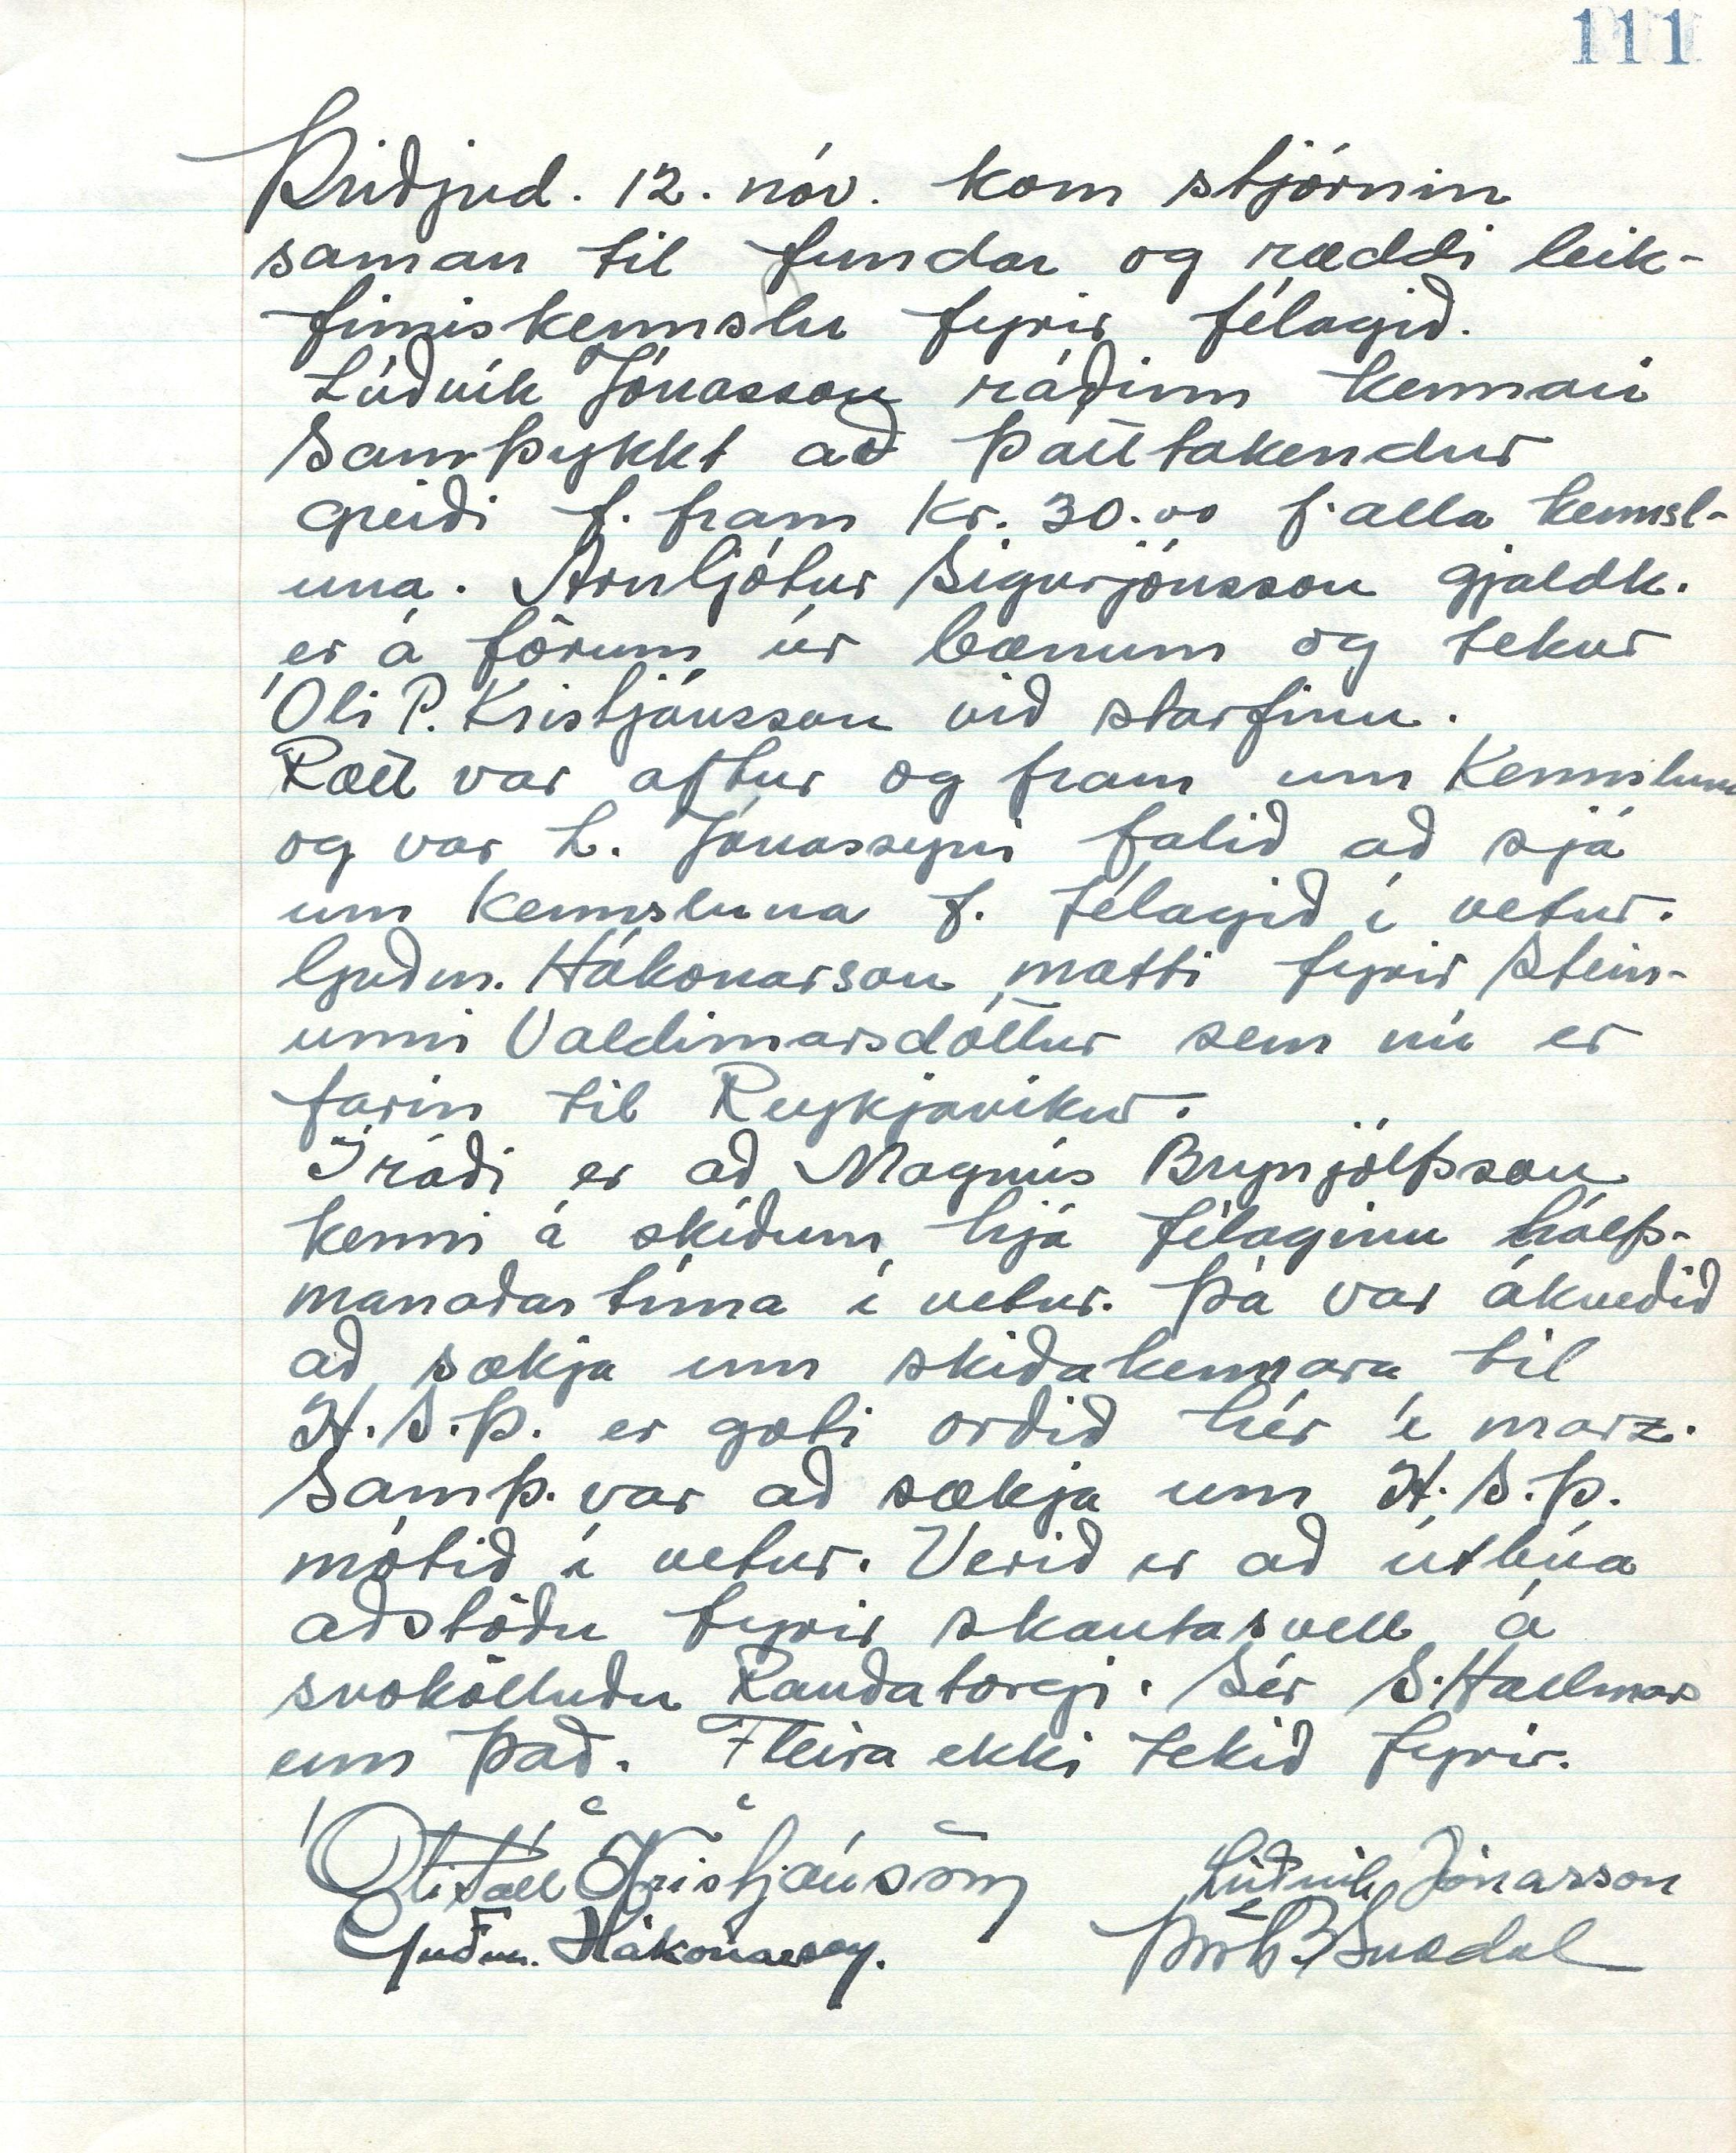 111
Þriðjud. 12. nóv. kom stjórnin
saman til fundar og ræddi leik-
fimiskennslu fyrir félagið.
Lúðvík Jónasson ráðinn kennari
Samþykkt að þátttakendur
greiði f. fram kr. 30.00 f. alla kennsl-
una. Arnljótur Sigurjónsson gjaldk.
er á förum úr bænum og tekur
Óli P. Kristjánsson við starfinu.
Rætt var aftur og fram um kennsluna
og var L. Jónassyni falið að sjá
um kennsluna f. félagið í vetur.
Guðm. Hákonarson mætti fyrir Stein-
unni Valdimarsdóttur sem nú er
farin til Reykjavíkur.
Í ráði er að Magnús Brynjólfsson
kenni á skíðum hjá félaginu hálfs-
mánaðar tíma í vetur. Þá var ákveðið
að sækja um skíðakennara til
H.S.Þ. er gæti orðið hér í marz.
Samþ. var að sækja um H.S.Þ.
mótið í vetur. Verið er að útbúa
aðstöðu fyrir skautasvell á
svokölluðu Rauðatorgi. Sér S. Hallmars
um það. Fleira ekki tekið fyrir.
Óli Páll Kristjánsson Lúðvík Jónasson
Guðm. Hákonarson. Þórh. B. Snædal